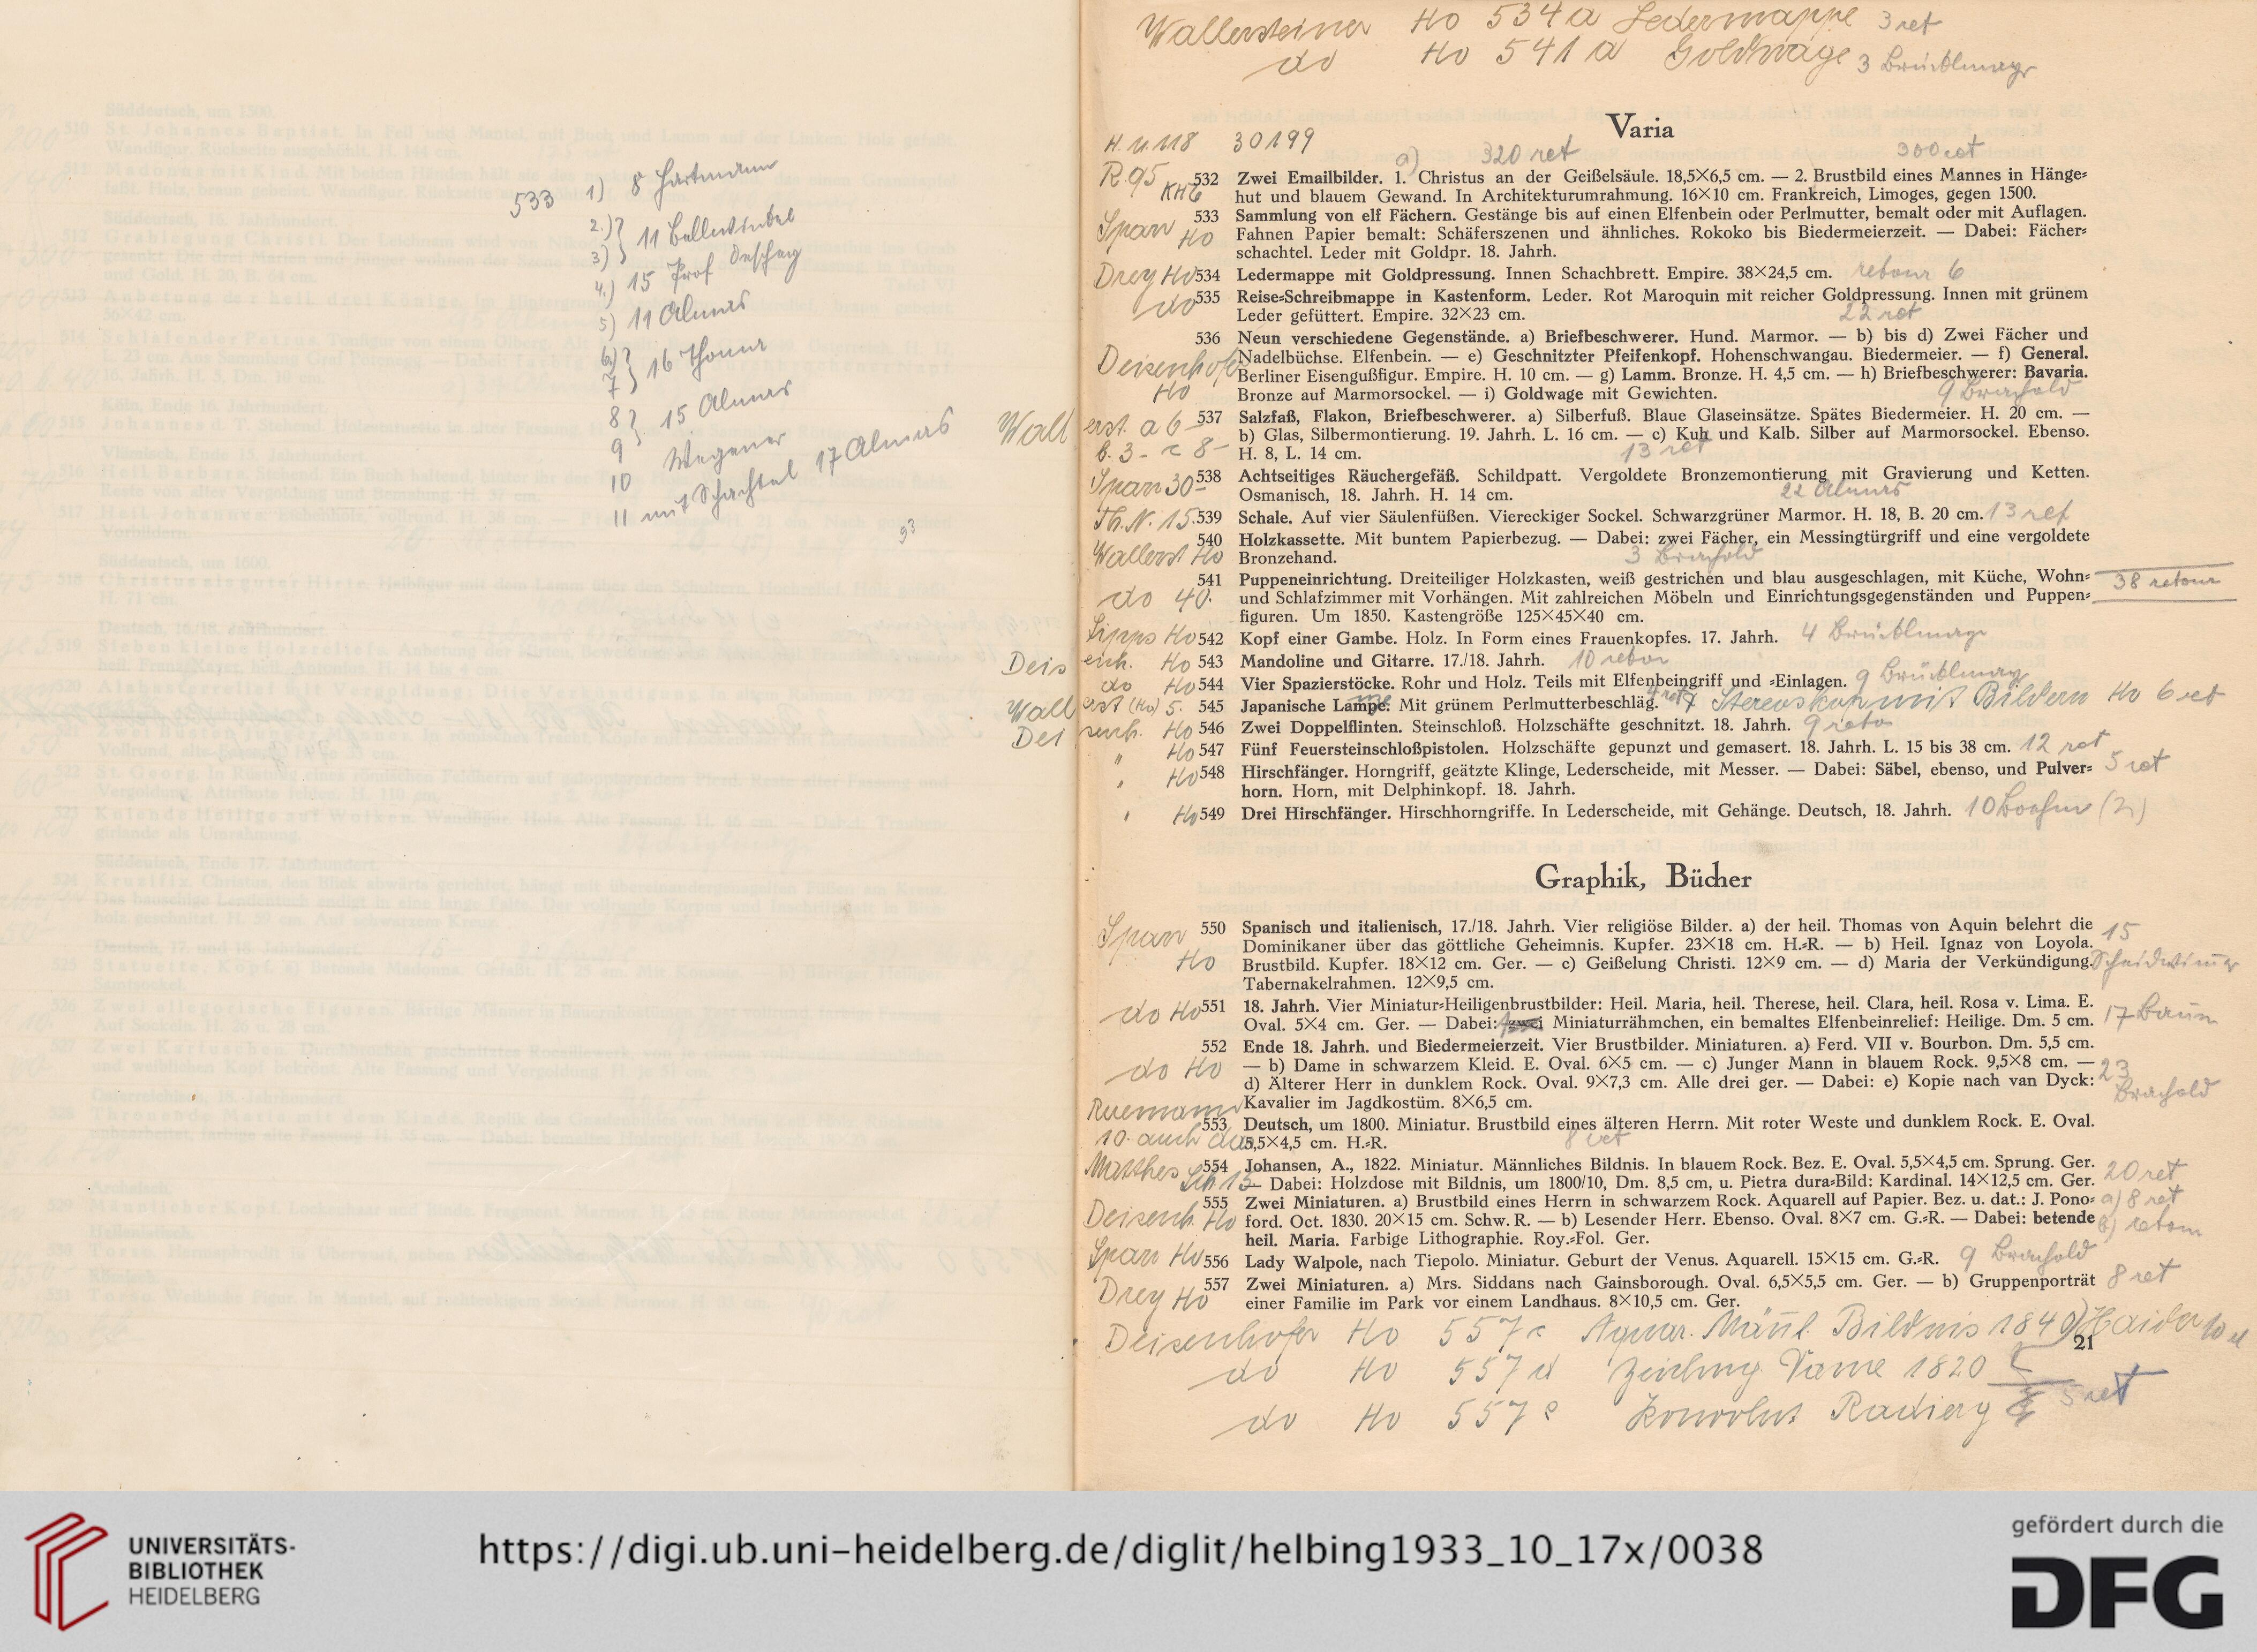 533 1) 8 Hartmann
2.)
3) 11
4.) 15 Prof
5) 11
6)
7 16
8)
9 15
10 Wegener
11 mit Schachtel 17
93
Wallersteiner Ho 534a Ledermappe 3 ret
do Ho 541a Goldwage 3
Varia
30199
a) 320 ret 300 ret
532 Zwei Emailbilder. 1. Christus an der Geißelsäule. 18,5×6,5 cm. — 2. Brustbild eines Mannes in Hänge-
hut und blauem Gewand. In Architekturumrahmung. 16×10 cm. Frankreich, Limoges, gegen 1500.
533 Sammlung von elf Fächern. Gestänge bis auf einen Elfenbein oder Perlmutter, bemalt oder mit Auflagen.
Ho Fahnen Papier bemalt: Schäferszenen und ähnliches. Rokoko bis Biedermeierzeit. — Dabei: Fächer-
schachtel. Leder mit Goldpr. 18. Jahrh.
Drey Ho 534 Ledermappe mit Goldpressung. Innen Schachbrett. Empire. 38×24,5 cm. retour 6
do 535 Reise-Schreibmappe in Kastenform. Leder. Rot Maroquin mit reicher Goldpressung. Innen mit grünem
Leder gefüttert. Empire. 32×23 cm. 22 ret
536 Neun verschiedene Gegenstände. a) Briefbeschwerer. Hund. Marmor. — b) bis d) Zwei Fächer und
Deisenhofer Nadelbüchse. Elfenbein. — e) Geschnitzter Pfeifenkopf. Hohenschwangau. Biedermeier. — f) General.
Berliner Eisengußfigur. Empire. H. 10 cm. — g) Lamm. Bronze. H. 4,5 cm. — h) Briefbeschwerer: Bavaria.
Ho Bronze auf Marmorsockel. — i) Goldwage mit Gewichten. 9
Wallerst. a 6- 537 Salzfaß, Flakon, Briefbeschwerer. a) Silberfuß. Blaue Glaseinsätze. Spätes Biedermeier. H. 20 cm. —
b) Glas, Silbermontierung. 19. Jahrh. L. 16 cm. — c) Kuh und Kalb. Silber auf Marmorsockel. Ebenso.
b. 3- c 8- H. 8, L. 14 cm. 13 ret
30- 538 Achtseitiges Räuchergefäß. Schildpatt. Vergoldete Bronzemontierung mit Gravierung und Ketten.
Osmanisch, 18. Jahrh. H. 14 cm. 22
Th. N. 15. 539 Schale. Auf vier Säulenfüßen. Viereckiger Sockel. Schwarzgrüner Marmor. H. 18, B. 20 cm. 13 ret
540 Holzkassette. Mit buntem Papierbezug. — Dabei: zwei Fächer, ein Messingtürgriff und eine vergoldete
Wallerst Ho Bronzehand. 3
541 Puppeneinrichtung. Dreiteiliger Holzkasten, weiß gestrichen und blau ausgeschlagen, mit Küche, Wohn- 38 retour
do 40. und Schlafzimmer mit Vorhängen. Mit zahlreichen Möbeln und Einrichtungsgegenständen und Puppen-
figuren. Um 1850. Kastengröße 125×45×40 cm.
Ho 542 Kopf einer Gambe. Holz. In Form eines Frauenkopfes. 17. Jahrh. 4
Deisenh. Ho 543 Mandoline und Gitarre. 17./18. Jahrh. 10
do Ho 544 Vier Spazierstöcke. Rohr und Holz. Teils mit Elfenbeingriff und -Einlagen. 9
Wallerst (Ho) 5. 545 Japanische Lampe. Mit grünem Perlmutterbeschläg. 4 ret Stereoskop mit Bildern Ho 6 ret
Deisenh. Ho 546 Zwei Doppelflinten. Steinschloß. Holzschäfte geschnitzt. 18. Jahrh. 9
" Ho 547 Fünf Feuersteinschloßpistolen. Holzschäfte gepunzt und gemasert. 18. Jahrh. L. 15 bis 38 cm. 12 ret
Ho 548 Hirschfänger. Horngriff, geätzte Klinge, Lederscheide, mit Messer. — Dabei: Säbel, ebenso, und Pulver- 5 ret
horn. Horn, mit Delphinkopf. 18. Jahrh.
Ho 549 Drei Hirschfänger. Hirschhorngriffe. In Lederscheide, mit Gehänge. Deutsch, 18. Jahrh. 10 Boehm (2)
Graphik, Bücher
550 Spanisch und italienisch, 17./18. Jahrh. Vier religiöse Bilder. a) der heil. Thomas von Aquin belehrt die 15
Dominikaner über das göttliche Geheimnis. Kupfer. 23×18 cm. H.-R. — b) Heil. Ignaz von Loyola.
Ho Brustbild. Kupfer. 18×12 cm. Ger. — c) Geißelung Christi. 12×9 cm. — d) Maria der Verkündigung.
Tabernakelrahmen. 12×9,5 cm.
do Ho 551 18. Jahrh. Vier Miniatur-Heiligenbrustbilder: Heil. Maria, heil. Therese, heil. Clara, heil. Rosa v. Lima. E. 17
Oval. 5×4 cm. Ger. — Dabei: zwei Miniaturrähmchen, ein bemaltes Elfenbeinrelief: Heilige. Dm. 5 cm.
552 Ende 18. Jahrh. und Biedermeierzeit. Vier Brustbilder. Miniaturen. a) Ferd. VII v. Bourbon. Dm. 5,5 cm.
do Ho — b) Dame in schwarzem Kleid. E. Oval. 6×5 cm. — c) Junger Mann in blauem Rock. 9,5×8 cm. — 23
d) Älterer Herr in dunklem Rock. Oval. 9×7,3 cm. Alle drei ger. — Dabei: e) Kopie nach van Dyck:
Ruemann Kavalier im Jagdkostüm. 8×6,5 cm.
553 Deutsch, um 1800. Miniatur. Brustbild eines älteren Herrn. Mit roter Weste und dunklem Rock. E. Oval.
10. auch 5,5×4,5 cm. H.-R. 8 ret
Matthes 554 Johansen, A., 1822. Miniatur. Männliches Bildnis. In blauem Rock. Bez. E. Oval. 5,5×4,5 cm. Sprung. Ger. 20 ret
— Dabei: Holzdose mit Bildnis, um 1800/10, Dm. 8,5 cm, u. Pietra dura-Bild: Kardinal. 14×12,5 cm. Ger.
555 Zwei Miniaturen. a) Brustbild eines Herrn in schwarzem Rock. Aquarell auf Papier. Bez. u. dat.: J. Pono- a) 8 ret
Deisenh. Ho ford. Oct. 1830. 20×15 cm. Schw. R. — b) Lesender Herr. Ebenso. Oval. 8×7 cm. G.-R. — Dabei: betende b) retour
heil. Maria. Farbige Lithographie. Roy.-Fol. Ger.
Ho 556 Lady Walpole, nach Tiepolo. Miniatur. Geburt der Venus. Aquarell. 15×15 cm. G.-R. 9
Drey Ho 557 Zwei Miniaturen. a) Mrs. Siddans nach Gainsborough. Oval. 6,5×5,5 cm. Ger. — b) Gruppenporträt 8 ret
einer Familie im Park vor einem Landhaus. 8×10,5 cm. Ger.
Deisenhofer Ho 557c Aquar. Männl. Bildnis 1849
21
do Ho 557d Dame 1820
do Ho 557e Konvolut 5 ret
UNIVERSITÄTS-
BIBLIOTHEK
HEIDELBERG
https://digi.ub.uni-heidelberg.de/diglit/helbing1933_10_17x/0038
gefördert durch die
DFG